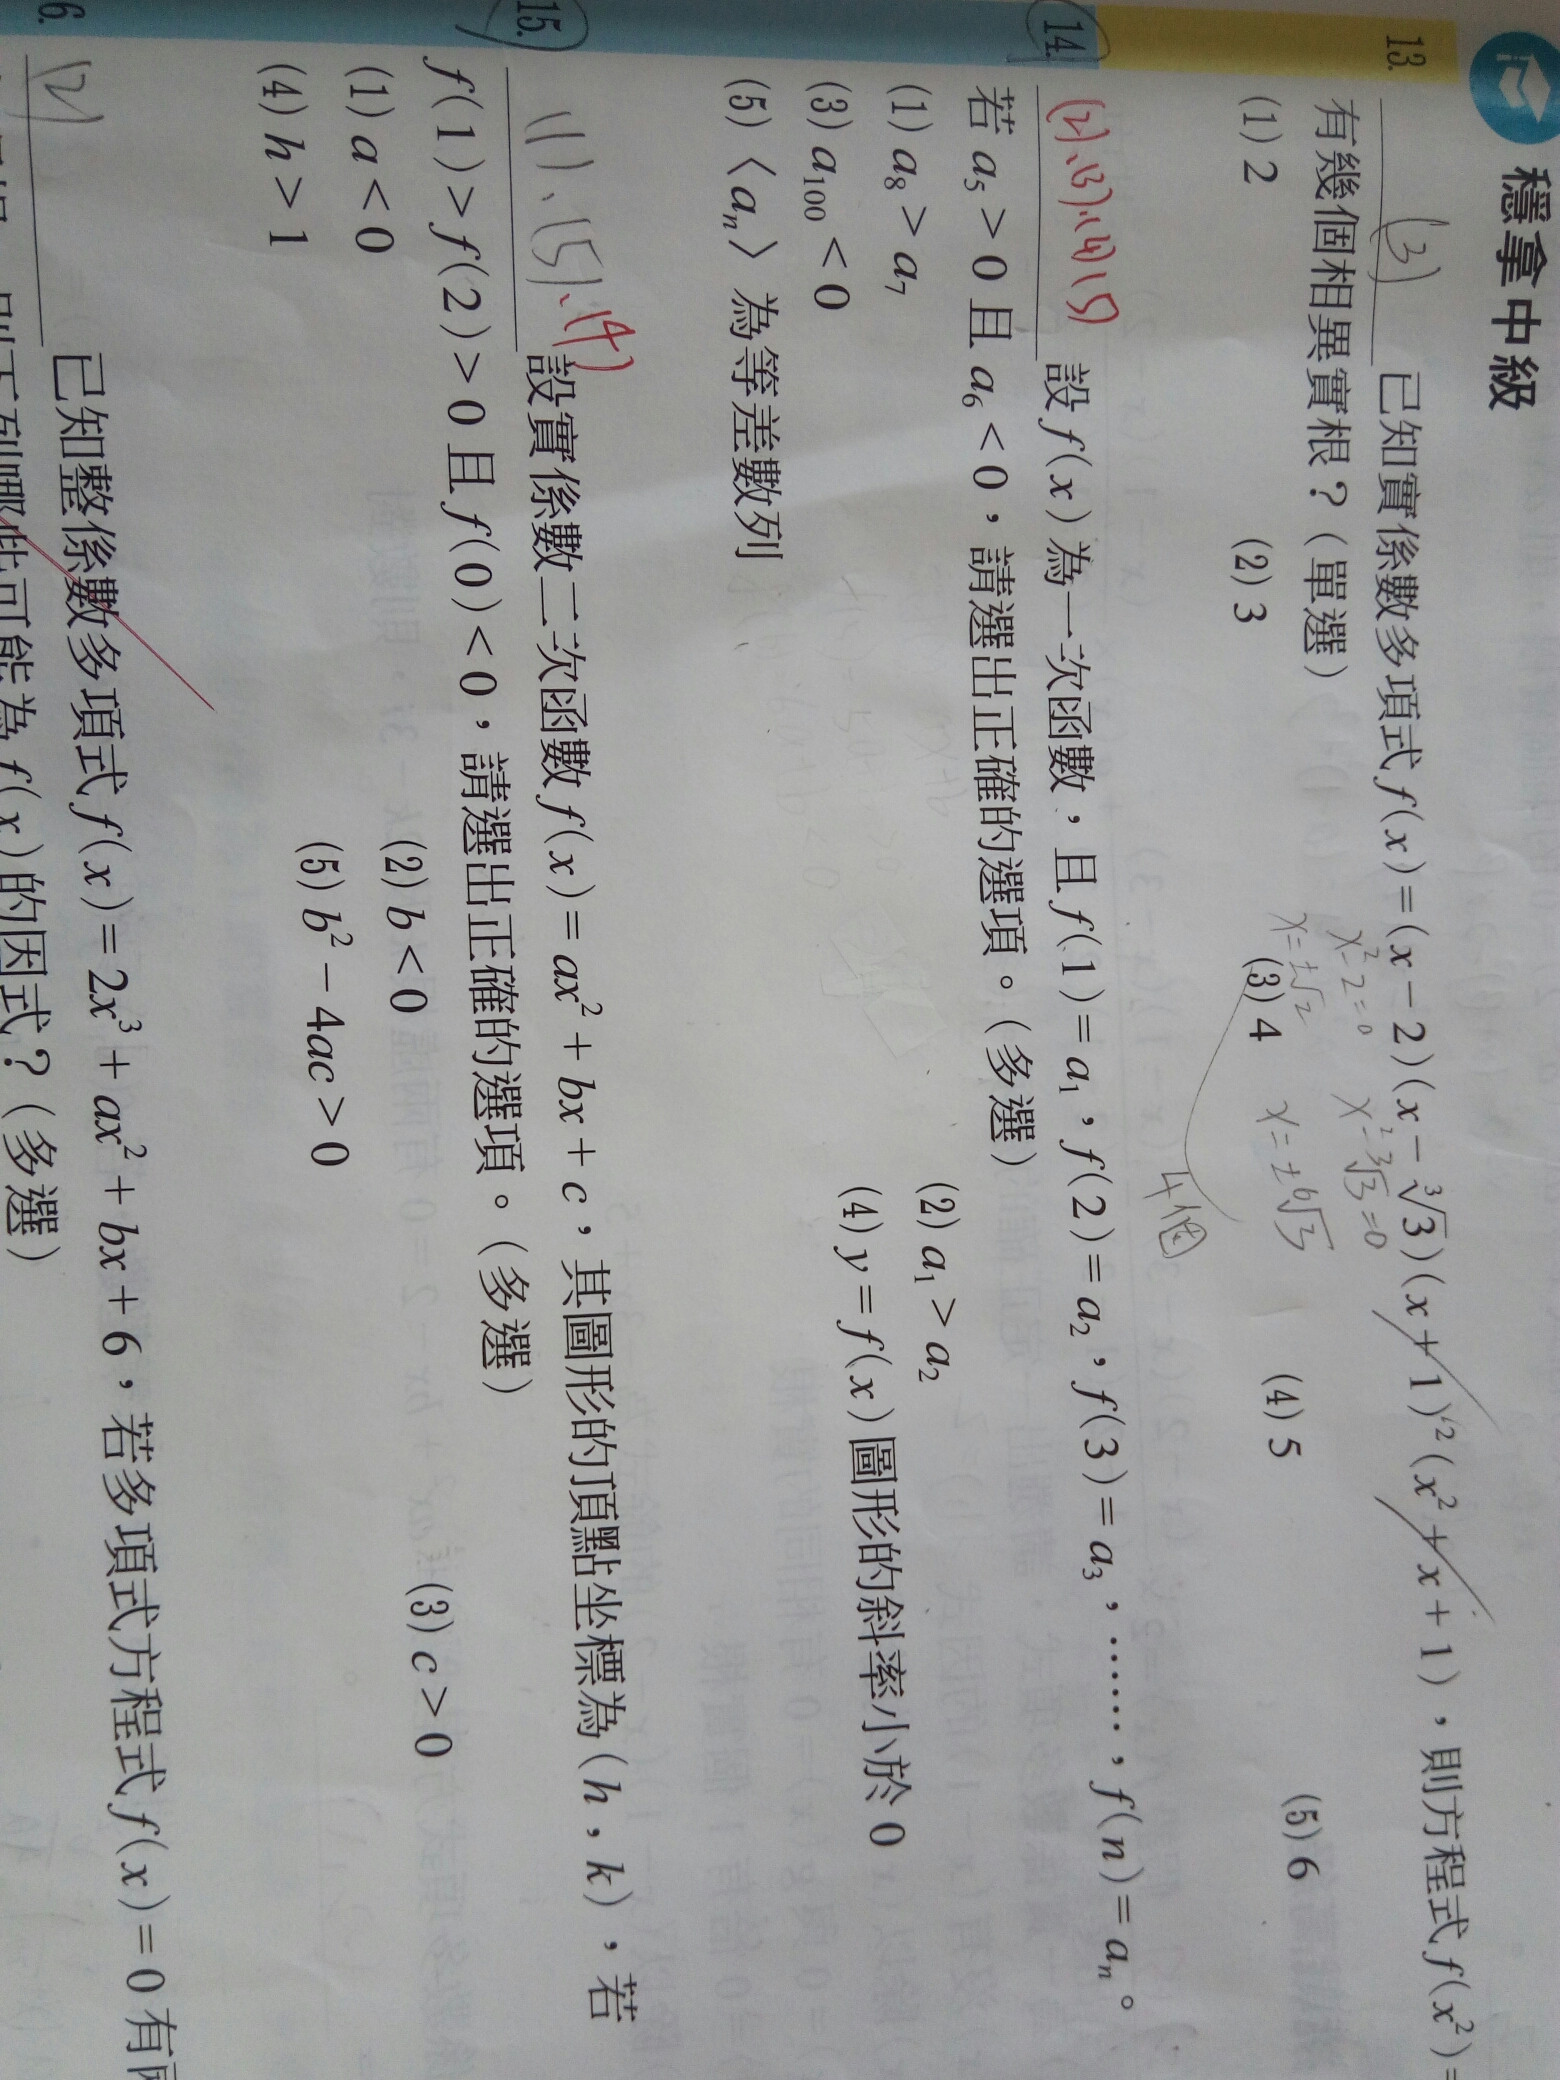 穩拿中級
13. (3) 已知實係數多項式 f(x)=(x-2)(x-∛3)(x+1)²(x²+x+1)，則方程式 f(x²)=
有幾個相異實根？(單選)
x²-2=0 x²-∛3=0
x=±√2 x=±⁶√3
4個
(1) 2 (2) 3 (3) 4 (4) 5 (5) 6
14. (2)、(3)、(4)(5) 設 f(x) 為一次函數，且 f(1)=a₁，f(2)=a₂，f(3)=a₃，……，f(n)=aₙ。
若 a₅>0 且 a₆<0，請選出正確的選項。(多選)
(1) a₈>a₇ (2) a₁>a₂
(3) a₁₀₀<0 (4) y=f(x) 圖形的斜率小於 0
(5) 〈aₙ〉為等差數列
15. (1)、(5)、(4) 設實係數二次函數 f(x)=ax²+bx+c，其圖形的頂點坐標為 (h，k)，若
f(1)>f(2)>0 且 f(0)<0，請選出正確的選項。(多選)
(1) a<0 (2) b<0 (3) c>0
(4) h>1 (5) b²-4ac>0
6. (2) 已知整係數多項式 f(x)=2x³+ax²+bx+6，若多項式方程式 f(x)=0 有
則下列哪些可能為 f(x) 的因式？(多選)